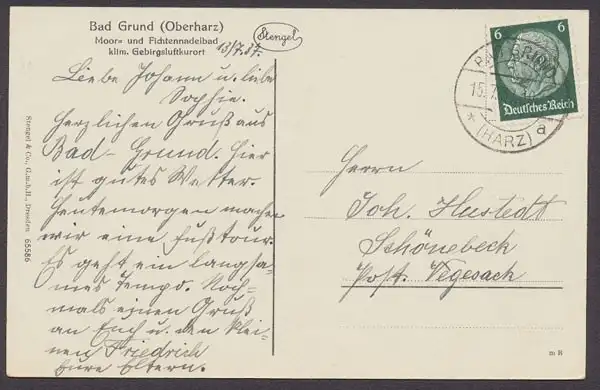 Bad Grund (Oberharz)
Moor- und Fichtennadelbad
klim. Gebirgsluftkurort
Stengel
13/7.37.
Liebe Johann u. liebe
Sophie.
Herzlichen Gruß aus
Bad-Grund. Hier
ist gutes Wetter.
Heutemorgen machen
wir eine Fußtour.
Es geht ein langsa-
mes Tempo. Noch-
mals einen Gruß
an Euch u. den klei-
nen Friedrich
Eure Eltern.
Stengel & Co., G.m.b.H., Dresden 65586
6 6
Deutsches Reich
BAD GRUND
15.7.
* (HARZ) a
Herrn
Joh. Hustedt
Schönebeck
Post. Vegesack
m R